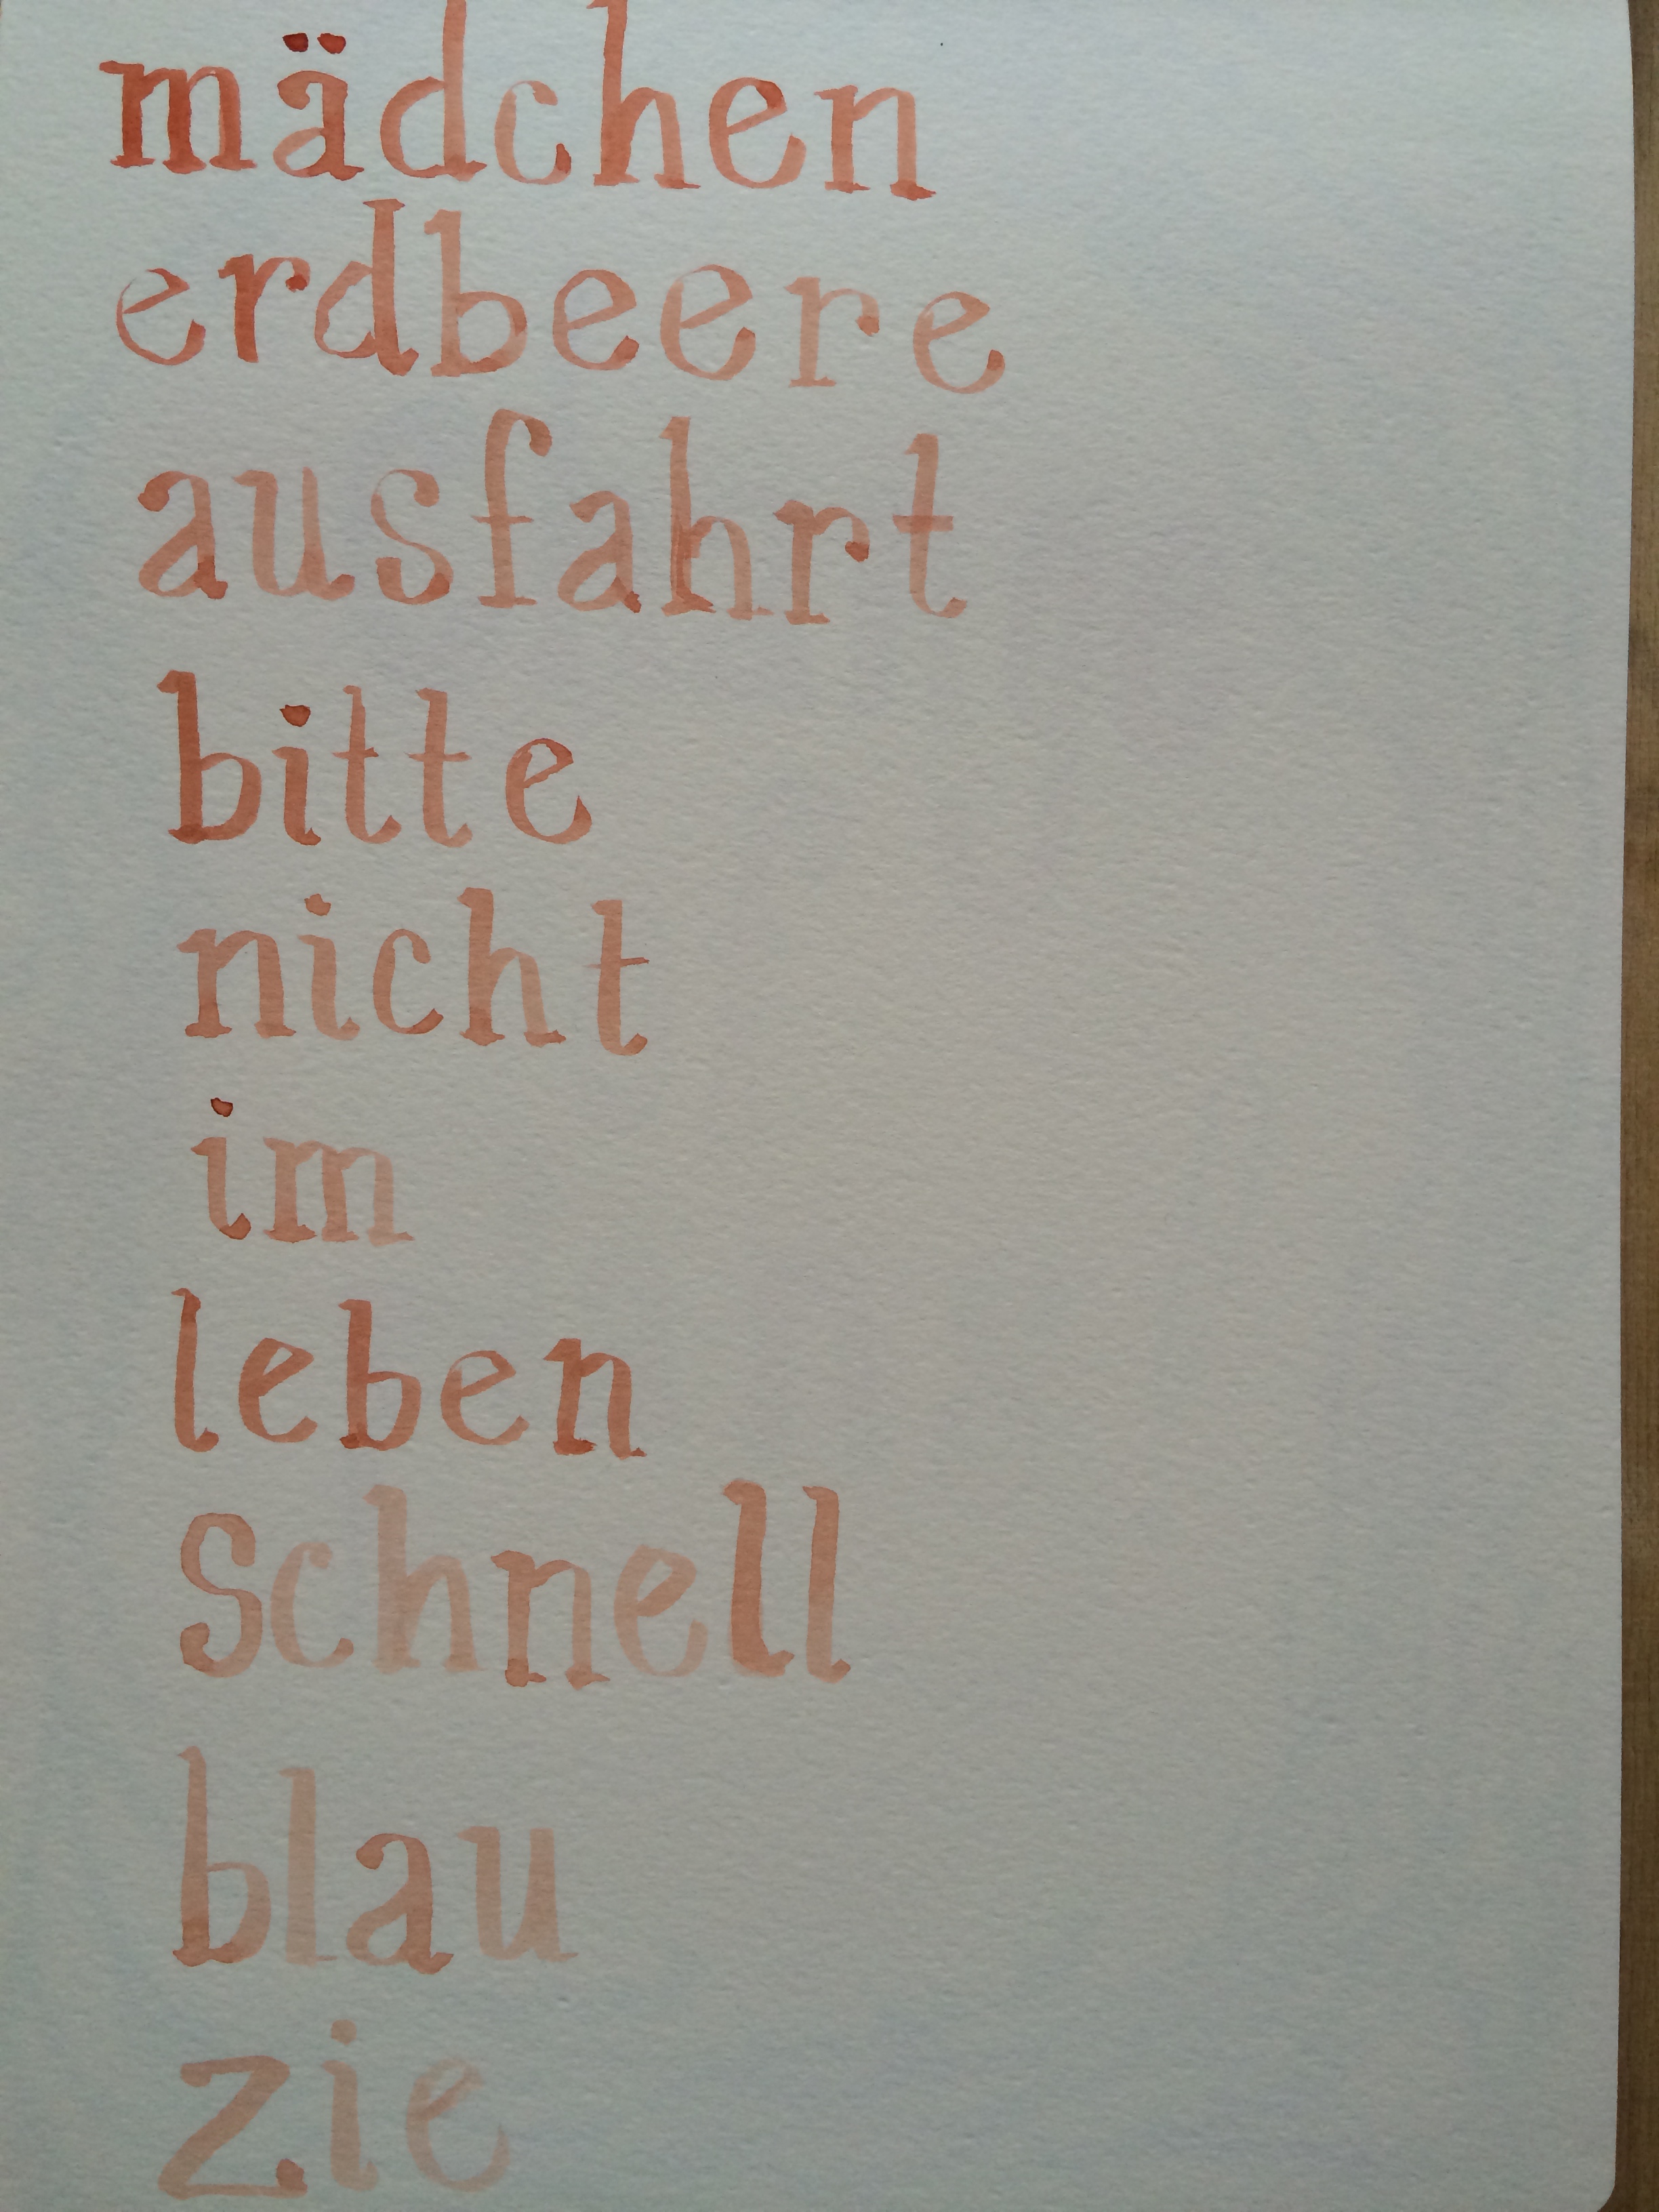 mädchen
erdbeere
ausfahrt
bitte
nicht
im
leben
schnell
blau
zie